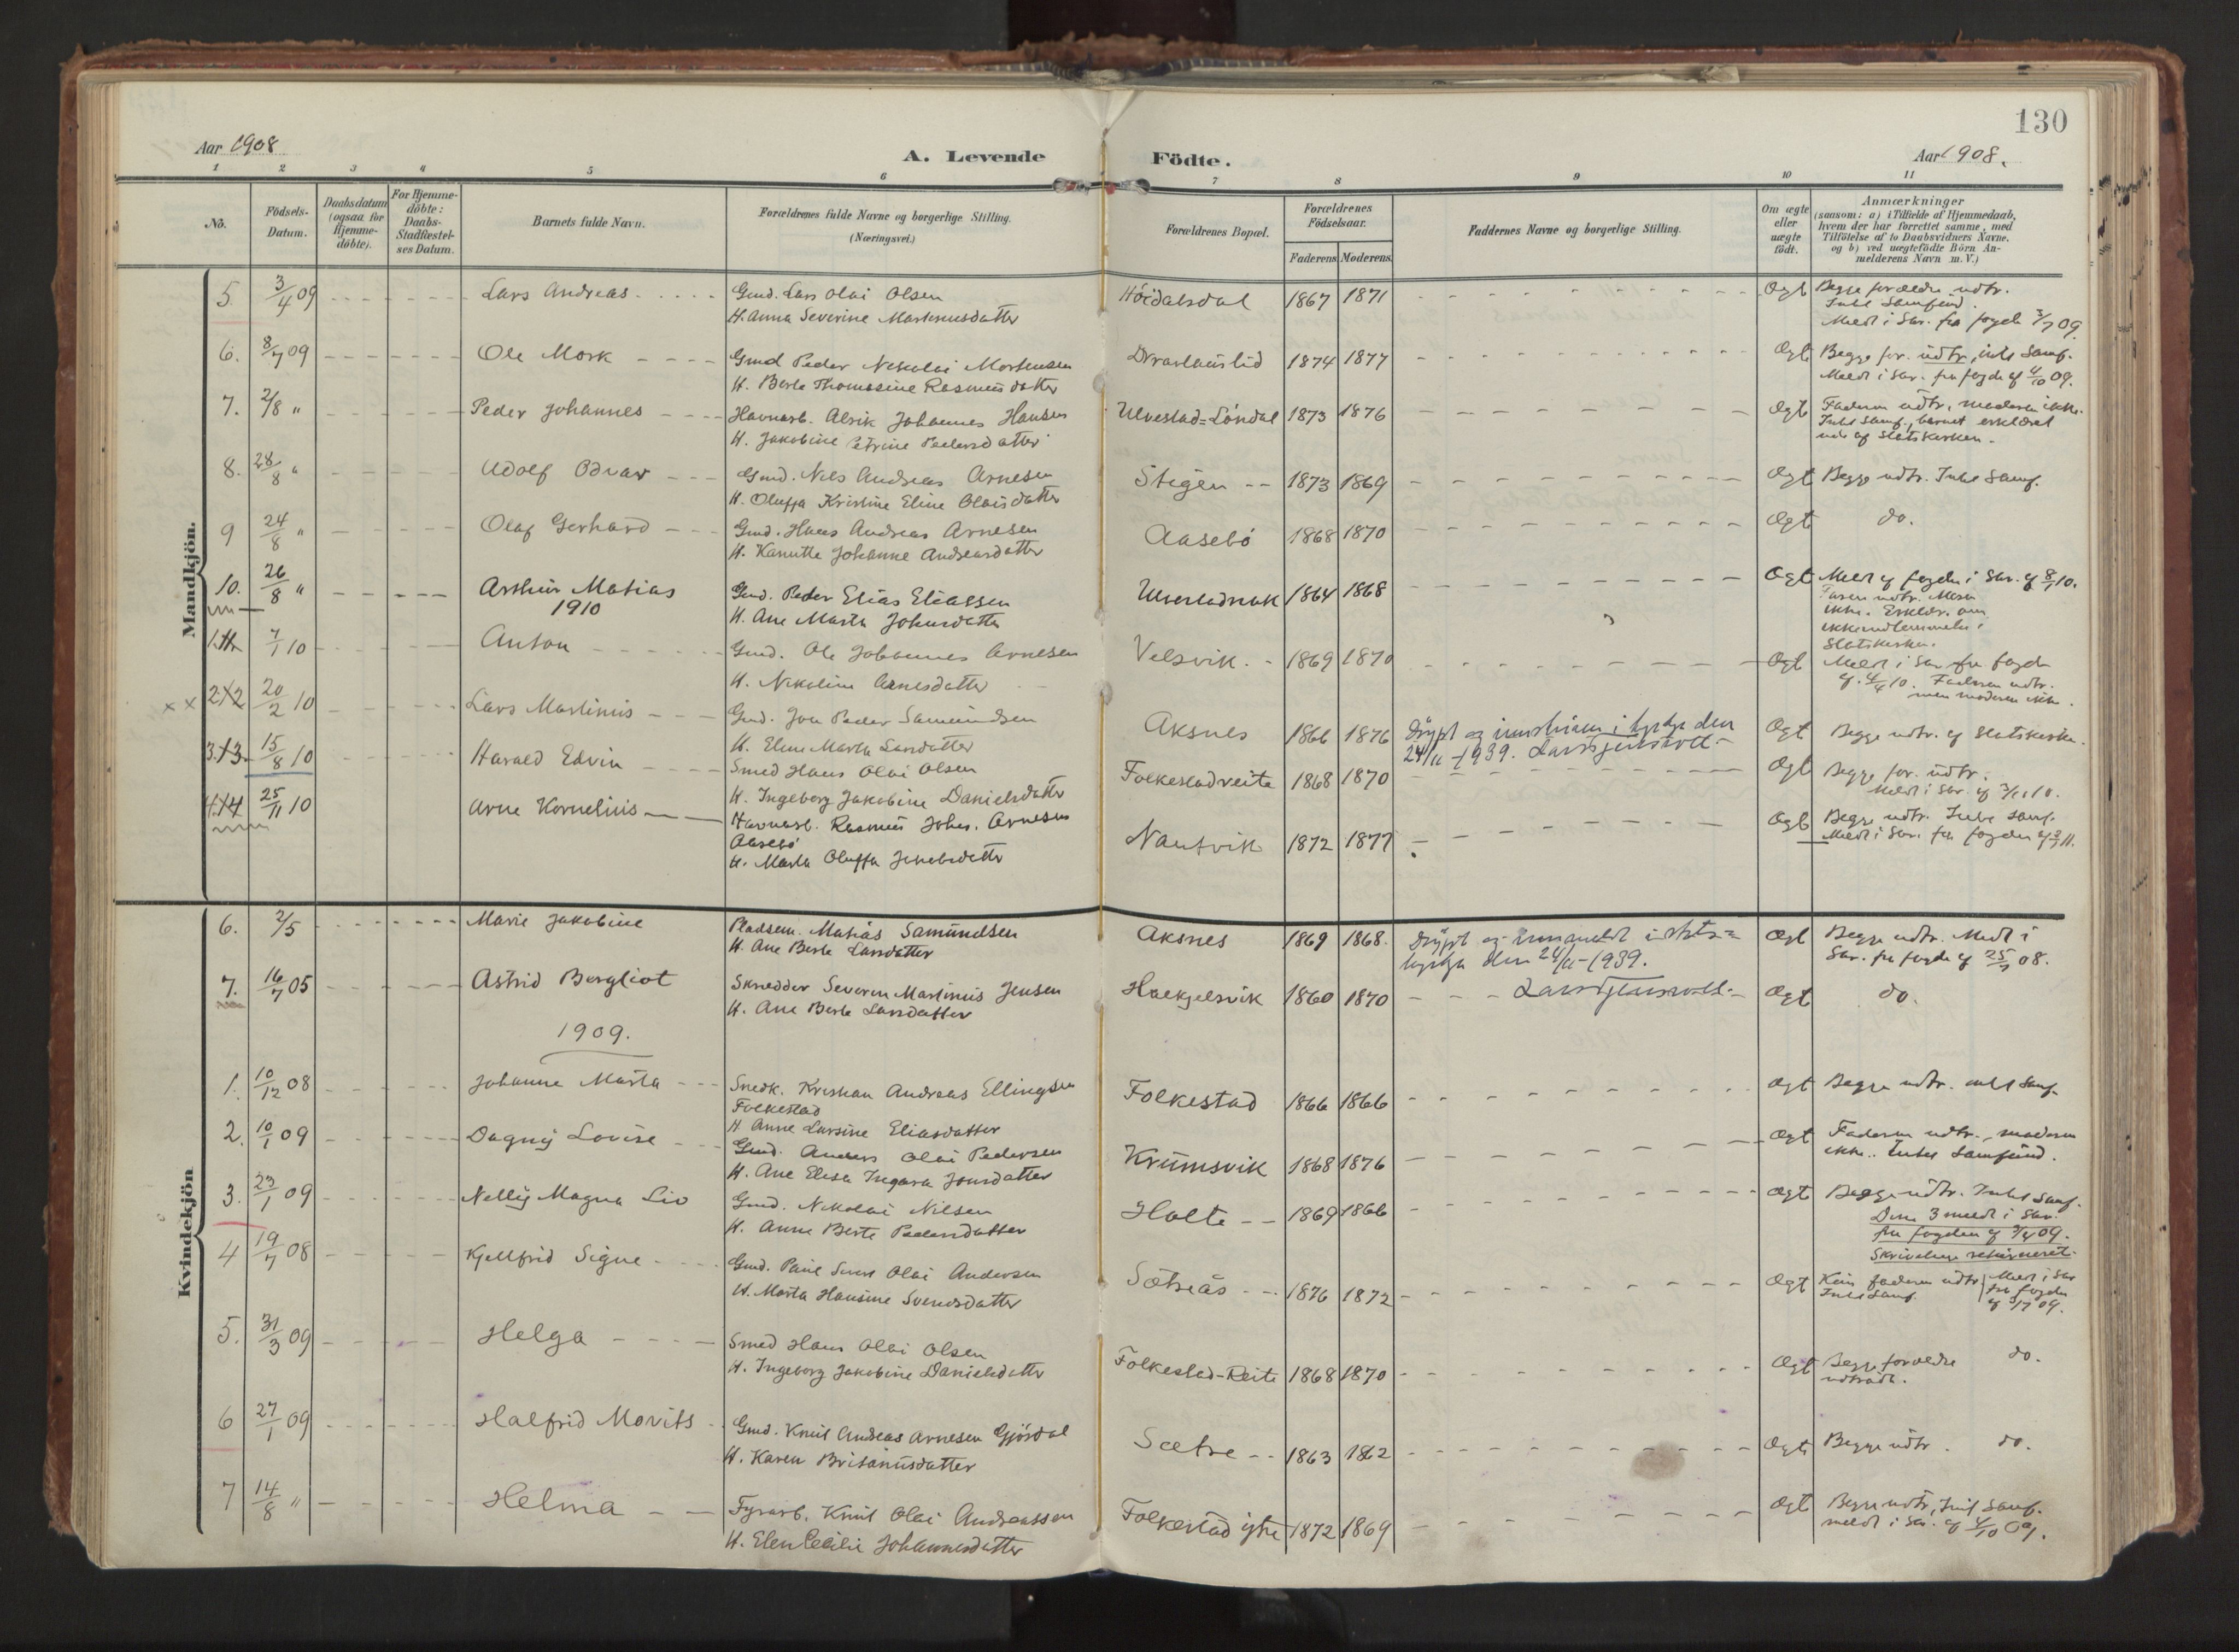 130
Aar 1908
A. Levende Födte.
Aar 1908.
1 2 3 4 5 6 7 8 9 10 11
No.
Födsels-Datum.
Daabsdatum (ogsaa for Hjemme-döbte).
For Hjemme-döbte: Daabs-Stadfæstel-ses Datum.
Barnets fulde Navn.
Forældrenes fulde Navne og borgerlige Stilling.
(Næringsvei.)
Forældrenes Bopæl.
Forældrenes Födselsaar.
Faderens Moderens
Faddernes Navne og borgerlige Stilling.
Om ægte eller uægte födt.
Anmærkninger
(saasom: a) i Tilfælde af Hjemmedaab,
hvem der har forrettet samme, med
Tilföielse af to Daabsvidners Navne.
og b) ved uægtefödte Börn An-
melderens Navn m. V.)
Mandkjön.
5. 3/4 09 Lars Andreas Gmd. Lars Olai Olsen Höidalsdal 1867 1871 Ogt Begge forældre udtr.
H. Anna Severine Martinusdatter
Meldt i Skr. fra foged 3/7 09.
6. 8/7 09 Ole Mork Gmd Peder Nikolai Mortensen 1874 1877 Ogt Begge for. udtr., intet Samf.
H. Berte Thomasine Rasmusdatter Meldt i Skr. fra fogden af 4/10 09.
7. 2/8 " Peder Johannes Havnarb. Alrik Johannes Hansen Ulvestad=Löndal 1873 1876 Ogt Faderen udtr., moderen ikke.
H. Jakobine Petrine Pedersdatter Intet Samf., barnet erklæret
ud af Statskirken.
8. 28/8 " Adolf Odvar Gmd. Nils Andreas Arnesen Stigen 1873 1869 Ogt Begge udtr. Intet Samf.
H. Oluffa Kristine Eline Olaisdatter
9 24/8 " Olaf Gerhard Gmd. Hans Andreas Arnesen Aasebö 1868 1870 Ogt do.
H. Kanutte Johanne Andreasdatter
10. 26/8 " Arthur Matias Gmd. Peder Elias Eliassen 1864 1868 Ogt Meldt af fogden i Skr. af 8/1 10.
1910 H. Ane Marta Johnsdatter
ikke. Erklær. om
Statskirken.
1. 7/1 10 Anton Gmd. Ole Johannes Arnesen Velsvik. 1869 1870 Ogt Meldt i Skr fra fogden
H. Nikoline Arnesdatter af 4/4 10. Faderen udtr.
men moderen ikke.
x x 2 20/2 10 Lars Martinus Gmd. Jon Peder Samundsen Aksnes 1866 1876 Döypt og innskriven i kyrkja den Ogt Begge udtr. af Statskirken.
H. Eline Marta Larsdatter 24/11-1939.
3. 15/8 10 Harald Edvin Smed Hans Olai Olsen Folkestadreite 1868 1870 Ogt Begge for. udtr.
H. Ingeborg Jakobine Danielsdatter
4 25/11 10 Arne Kornelius Havnarb. Rasmus Johs. Arnesen Nautvik 1872 1877 Ogt Begge udtr. Intet Samf.
Aasebö Meldt i Skr. fra fogden
H. Marta Oluffa Jakobsdatter
Kvindekjön
6. 2/5 Marie Jakobine Pladsem. Matias Samundsen Aksnes 1869 1868. Döypt og innmeldt i stats= Ogt Begge udtr. Meldt i
H. Ane Berte Larsdatter kyrkja den 24/11-1939. Skr. fra fogden af 25/7 08.
7. 16/7 05 Astrid Bergliot Skrædder Severin Martinus Jensen Hækjelsvik 1860 1870 Ogt do.
H. Ane Berte Larsdatter
1909.
1. 10/12 08 Johanne Marta Snedk. Kristian Andreas Ellingsen Folkestad 1866 1866 Ogt Begge udtr. intet Samf.
Folkestad
H. Anne Larsine Eliasdatter
2. 10/1 09 Dagny Lovise Gmd. Anders Olai Pedersen Krumsvik 1868 1876 Ogt Faderen udtr., moderen
H. Ane Elisa Jonsdatter ikke. Intet Samfund.
3. 23/1 09 Nelly Magna Liv Gmd. Nikolai Nilsen Holte 1869 1866 Ogt Begge udtr. Intet Samf.
H. Anne Berte Pedersdatter Disse 3 meldt i Skr.
fra fogden af 3/4 09.
Skrivelse returneret.
4 19/7 08 Kjellfrid Signe Gmd. Paul Olai Andersen Sætreås 1876 1872 Ogt Kun faderen udtr. Meldt i Skr
H. Marta Hansine Svendsdatter Intet Samf. fra fogden
5. 31/3 09 Helga Smed Hans Olai Olsen Folkestad-Reite 1868 1870 Ogt Begge forældre do.
H. Ingeborg Jakobine Danielsdatter udtrådt.
6 27/1 09 Halfrid Movits Gmd. Knut Andreas Arnesen Gjösdal Sætre 1863 1862 Ogt Begge udtr. do.
H. Karen Britanusdatter
7 14/8 " Helma Fyrarb. Knut Olai Andreassen Folkestad ytre 1872 1869 Ogt Begge udtr., Intet Samf.
H. Elen Cecilie Johannesdatter meldt i Skr. af 4/10 09.